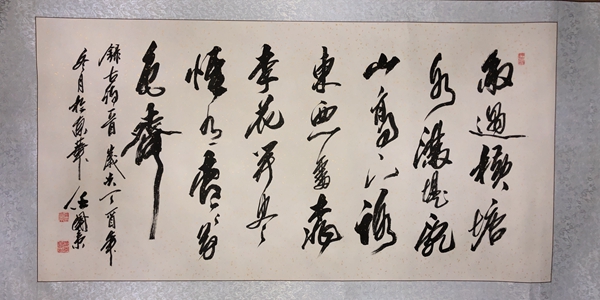 雨過橫塘
水滿堤亂
山高下路
東西一番桃
李花開盡
惟有青々草
色齊
錄古詩一首歲次丁酉年
月於京華 任國